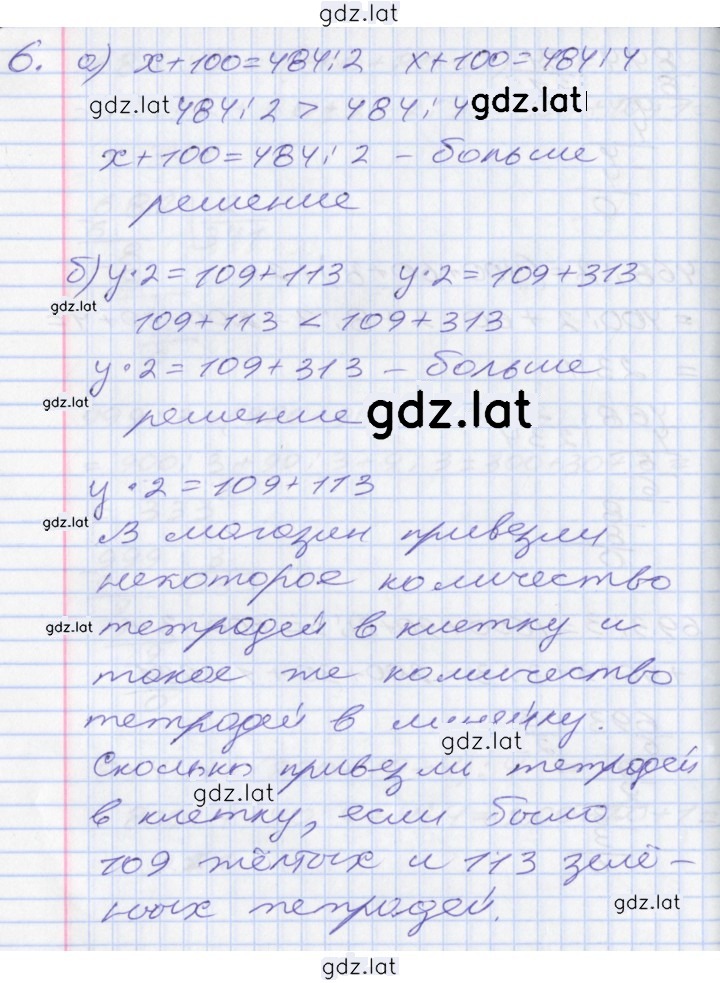 gdz.lat
6. а) x+100=484:2 x+100=484:4
gdz.lat 484:2 > 484:4 gdz.lat
x+100=484:2 – больше
решение
б) y·2=109+113 y·2=109+313
gdz.lat
109+113 < 109+313
y·2=109+313 – больше
gdz.lat
решение gdz.lat
y·2=109+113
gdz.lat
В магазин привезли
некоторое количество
gdz.lat тетрадей в клетку и
такое же количество
тетрадей в линейку.
gdz.lat
Сколько привезли тетрадей
gdz.lat
в клетку, если было
109 жёлтых и 113 зелё-
ных тетрадей.
gdz.lat
gdz.lat